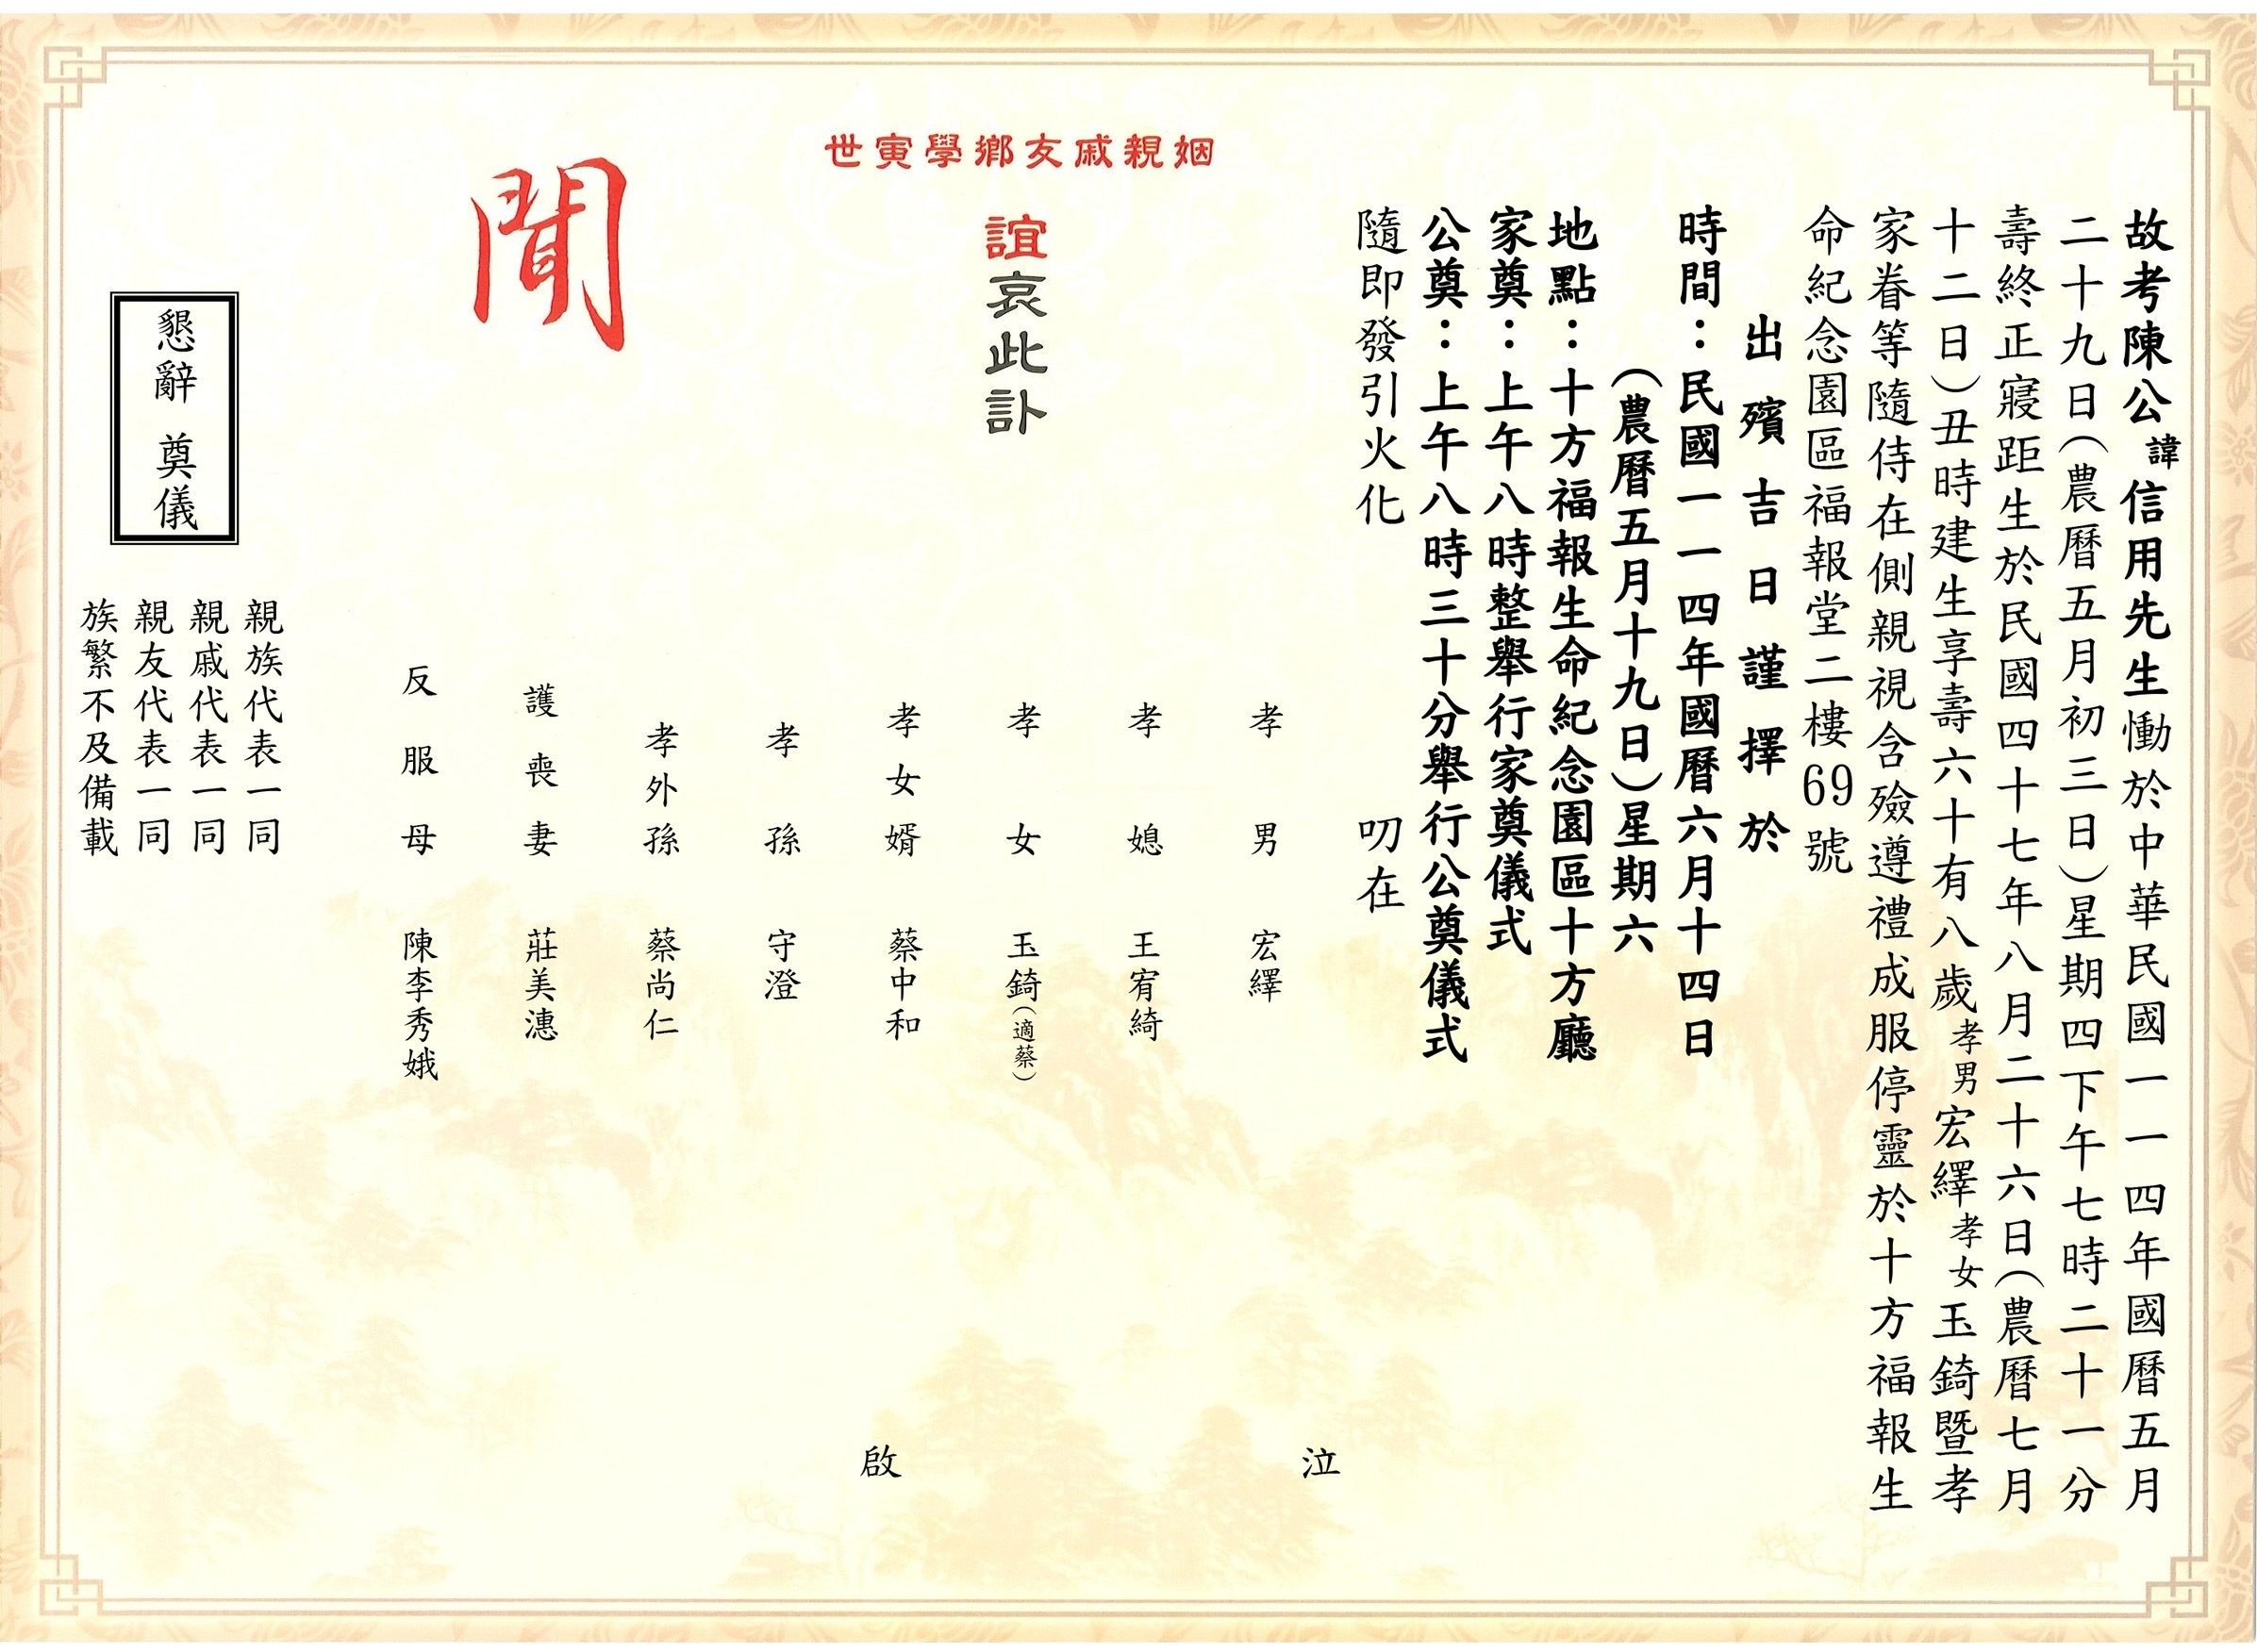 故考陳公諱信用先生慟於中華民國一一四年國曆五月
二十九日(農曆五月初三日)星期四下午七時二十一分
壽終正寢距生於民國四十七年八月二十六日(農曆七月
十二日)丑時建生享壽六十有八歲孝男宏繹孝女玉錡暨孝
家眷等隨侍在側親視含殮遵禮成服停靈於十方福報生
命紀念園區福報堂二樓69號
出殯吉日謹擇於
時間：民國一一四年國曆六月十四日
(農曆五月十九日)星期六
地點：十方福報生命紀念園區十方廳
家奠：上午八時整舉行家奠儀式
公奠：上午八時三十分舉行公奠儀式
隨即發引火化 叨在
姻親戚友鄉學寅世
誼哀此訃
聞
孝男 宏繹
孝媳 王宥綺
孝女 玉錡(適蔡)
孝女婿 蔡中和
孝孫 守澄
孝外孫 蔡尚仁
護喪妻 莊美漶
反服母 陳李秀娥
泣
啟
親族代表一同
親戚代表一同
親友代表一同
族繁不及備載
懇辭 奠儀